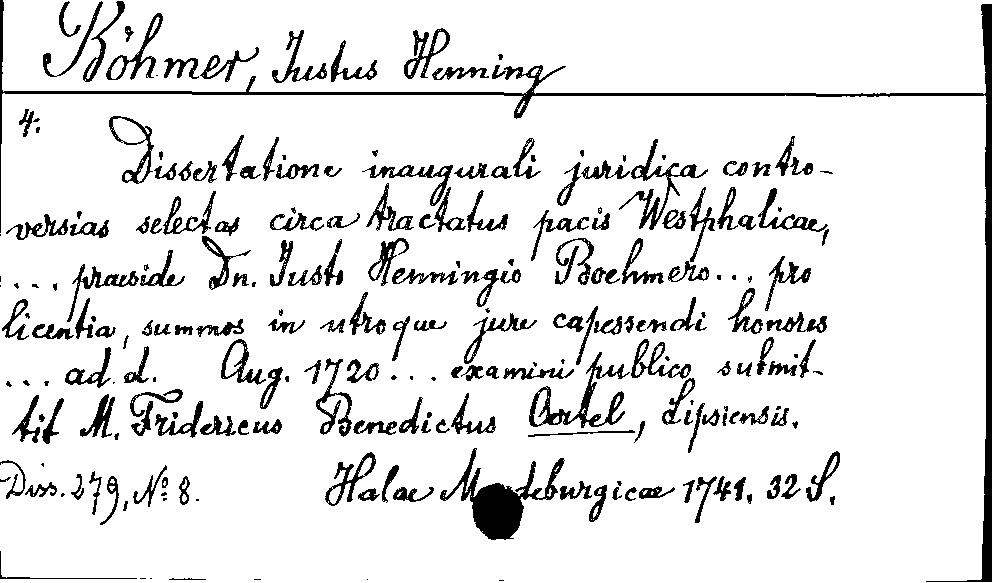 Böhmer, Justus Henning
4.
Dissertatione inaugurali juridica contro-
versias selectas circa tractatus pacis Westphalicae,
... praeside Dn. Justo Henningio Boehmero... pro
licentia, summos in utroque jure capessendi honores
... ad d. Aug. 1720... examini publico submit-
tit M. Fridericus Benedictus Oertel, Lipsiensis.
Diss. 279, No 8. Halae Magdeburgicae 1741. 32 S.